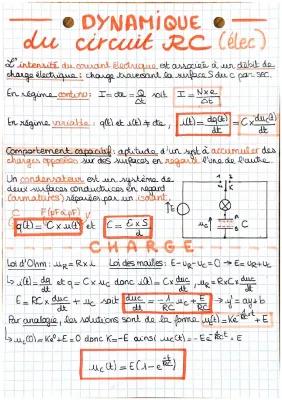 DYNAMIQUE
du circuit RC (élec)
L'intensité du courant électrique est associée à un débit de
charge électrique : charge traversant la surface S de c par sec.
En régime continu : I = Q/Δt soit I = N×e/Δt
En régime variable : q(t) et i(t) ≠ cte, i(t) = dq(t)/dt = C× du_c(t)/dt
Comportement capacitif : aptitude d'un syst à accumuler des
charges opposées sur des surfaces en regard l'une de l'autre.
Un condensateur est un système de
deux surfaces conductrices en regard
(armatures) séparées par un isolant.
C F (pF à µF) V
q(t) = C × u(t) et C = E×S/d
E
u_c
CHARGE
Loi d'Ohm : u_R = R × i Loi des mailles : E - u_R - u_C = 0 → E = u_R + u_C
↳ i(t) = dq/dt et q = C × u_c donc i(t) = C × du_c/dt, u_R = R×C× du_c/dt
E = RC × du_c/dt + u_c soit du_c/dt = -1/RC u_c + E/RC → y' = ay + b
Par analogie, les solutions sont de la forme u_c(t) = Ke^(-t/RC) + E
↳ u_c(0) = Ke⁰ + E = 0 donc K = -E ainsi u_c(t) = -Ee^(-t/RC) + E
u_c(t) = E(1 - e^(-t/RC))